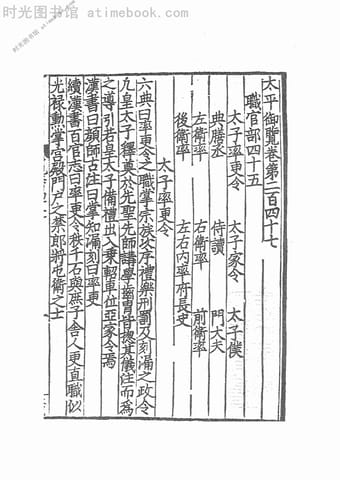 时光图书馆 atimebook.com
太平御覽卷第二百四十七
職官部四十五
太子率更令 太子家令 太子僕
典膳丞 侍讀 門大夫
左衛率 右衛率 前衛率
後衛率 左右内率府長史
太子率更令
六典曰率更令之職掌宗族次序禮樂刑罰及刻漏之政令
凡皇太子釋奠於先聖先師講學齒胄皆揔其儀注而爲
之導引若皇太子備禮出入乘軺車位亞家令焉
漢書曰顔師古注曰掌知漏刻曰率更
續漢書百官志曰率更令秩千石與庶子舍人更直職似
光禄勲掌宮殿門户之禁郎將屯衛之士
时光图书馆 atimebook.com